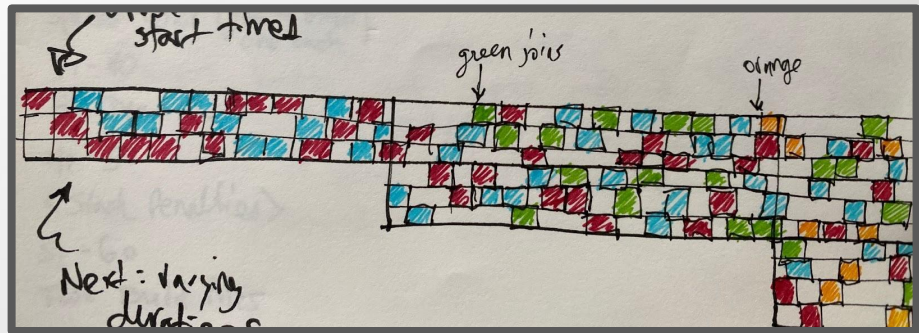 start times
green joins
orange
Next: varying
durations